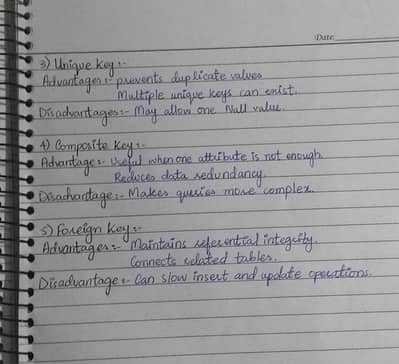 Date:
3) Unique key:-
Advantages:- prevents duplicate values
Multiple unique keys can exist.
Disadvantages:- May allow one Null value.
4) Composite Key:-
Advantage:- Useful when one attribute is not enough.
Reduces data redundancy.
Disadvantage:- Makes queries more complex.
5) Foreign Key:-
Advantages:- Maintains referential integrity.
Connects related tables.
Disadvantage:- Can slow insert and update operations.